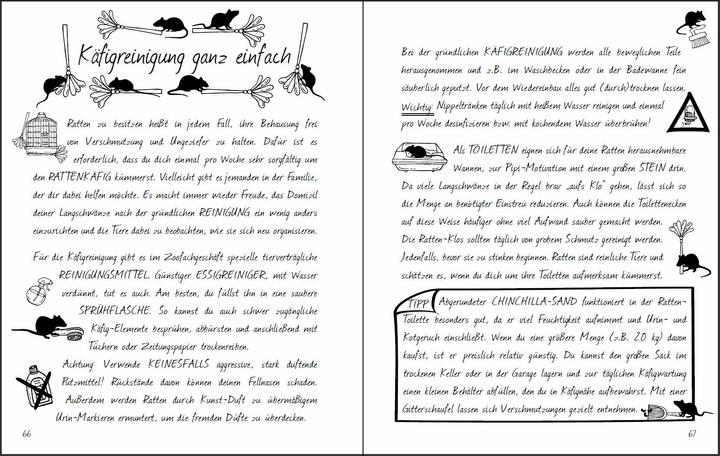 Käfigreinigung ganz einfach
Ratten zu besitzen heißt in jedem Fall, ihre Behausung frei
von Verschmutzung und Ungeziefer zu halten. Dafür ist es
erforderlich, dass du dich einmal pro Woche sehr sorgfältig um
den RATTENKÄFIG kümmerst. Vielleicht gibt es jemanden in der Familie,
der dir dabei helfen möchte. Es macht immer wieder Freude, das Domizil
deiner Langschwänze nach der gründlichen REINIGUNG ein wenig anders
einzurichten und die Tiere dabei zu beobachten, wie sie sich neu organisieren.
Für die Käfigreinigung gibt es im Zoofachgeschäft spezielle tierverträgliche
REINIGUNGSMITTEL. Günstiger ESSIGREINIGER, mit Wasser
verdünnt, tut es auch. Am besten, du füllst ihn in eine saubere
SPRÜHFLASCHE. So kannst du auch schwer zugängliche
Käfig-Elemente besprühen, abbürsten und anschließend mit
Tüchern oder Zeitungspapier trockenreiben.
Achtung: Verwende KEINESFALLS aggressive, stark duftende
Putzmittel! Rückstände davon können deinen Fellnasen schaden.
Außerdem werden Ratten durch Kunst-Duft zu übermäßigem
Urin-Markieren ermuntert, um die fremden Düfte zu überdecken.
66
Bei der gründlichen KÄFIGREINIGUNG werden alle beweglichen Teile
herausgenommen und z.B. im Waschbecken oder in der Badewanne fein
säuberlich geputzt. Vor dem Wiedereinbau alles gut (durch)trocknen lassen.
Wichtig: Nippeltränken täglich mit heißem Wasser reinigen und einmal
pro Woche desinfizieren bzw. mit kochendem Wasser überbrühen!
Als TOILETTEN eignen sich für deine Ratten herausnehmbare
Wannen, zur Pipi-Motivation mit einem großen STEIN drin.
Da viele Langschwänze in der Regel brav „aufs Klo“ gehen, lässt sich so
die Menge an benötigter Einstreu reduzieren. Auch können die Toilettenecken
auf diese Weise häufiger ohne viel Aufwand sauber gemacht werden.
Die Ratten-Klos sollten täglich von grobem Schmutz gereinigt werden.
Jedenfalls, bevor sie zu stinken beginnen. Ratten sind reinliche Tiere und
schätzen es, wenn du dich um ihre Toiletten aufmerksam kümmerst.
TIPP Abgerundeter CHINCHILLA-SAND funktioniert in der Ratten-
Toilette besonders gut, da er viel Feuchtigkeit aufnimmt und Urin- und
Kotgeruch einschließt. Wenn du eine größere Menge (z.B. 20 kg) davon
kaufst, ist er preislich relativ günstig. Du kannst den großen Sack im
trockenen Keller oder in der Garage lagern und zur täglichen Käfigwartung
einen kleinen Behälter abfüllen, den du in Käfignähe aufbewahrst. Mit einer
Gitterschaufel lassen sich Verschmutzungen gezielt entnehmen.
67